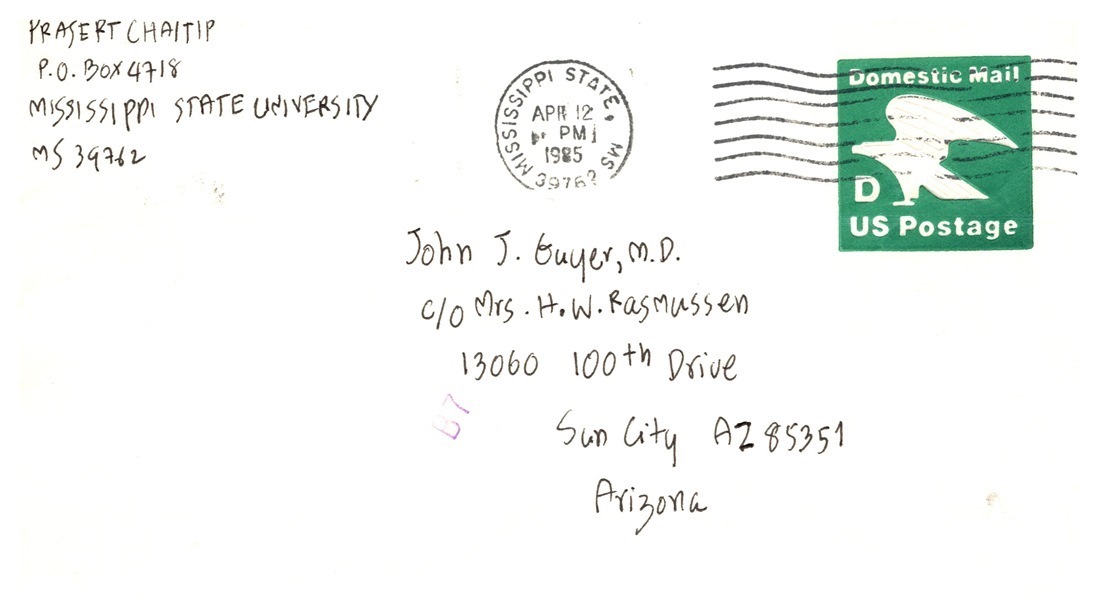 PRASERT CHAITIP
P.O. BOX 4718
MISSISSIPPI STATE UNIVERSITY
MS 39762
MISSISSIPPI STATE, MS
APR 12
PM
1985
3976?
Domestic Mail
D
US Postage
John J. Guyer, M.D.
c/o Mrs. H.W. Rasmussen
13060 100th Drive
B7
Sun City AZ 85351
Arizona